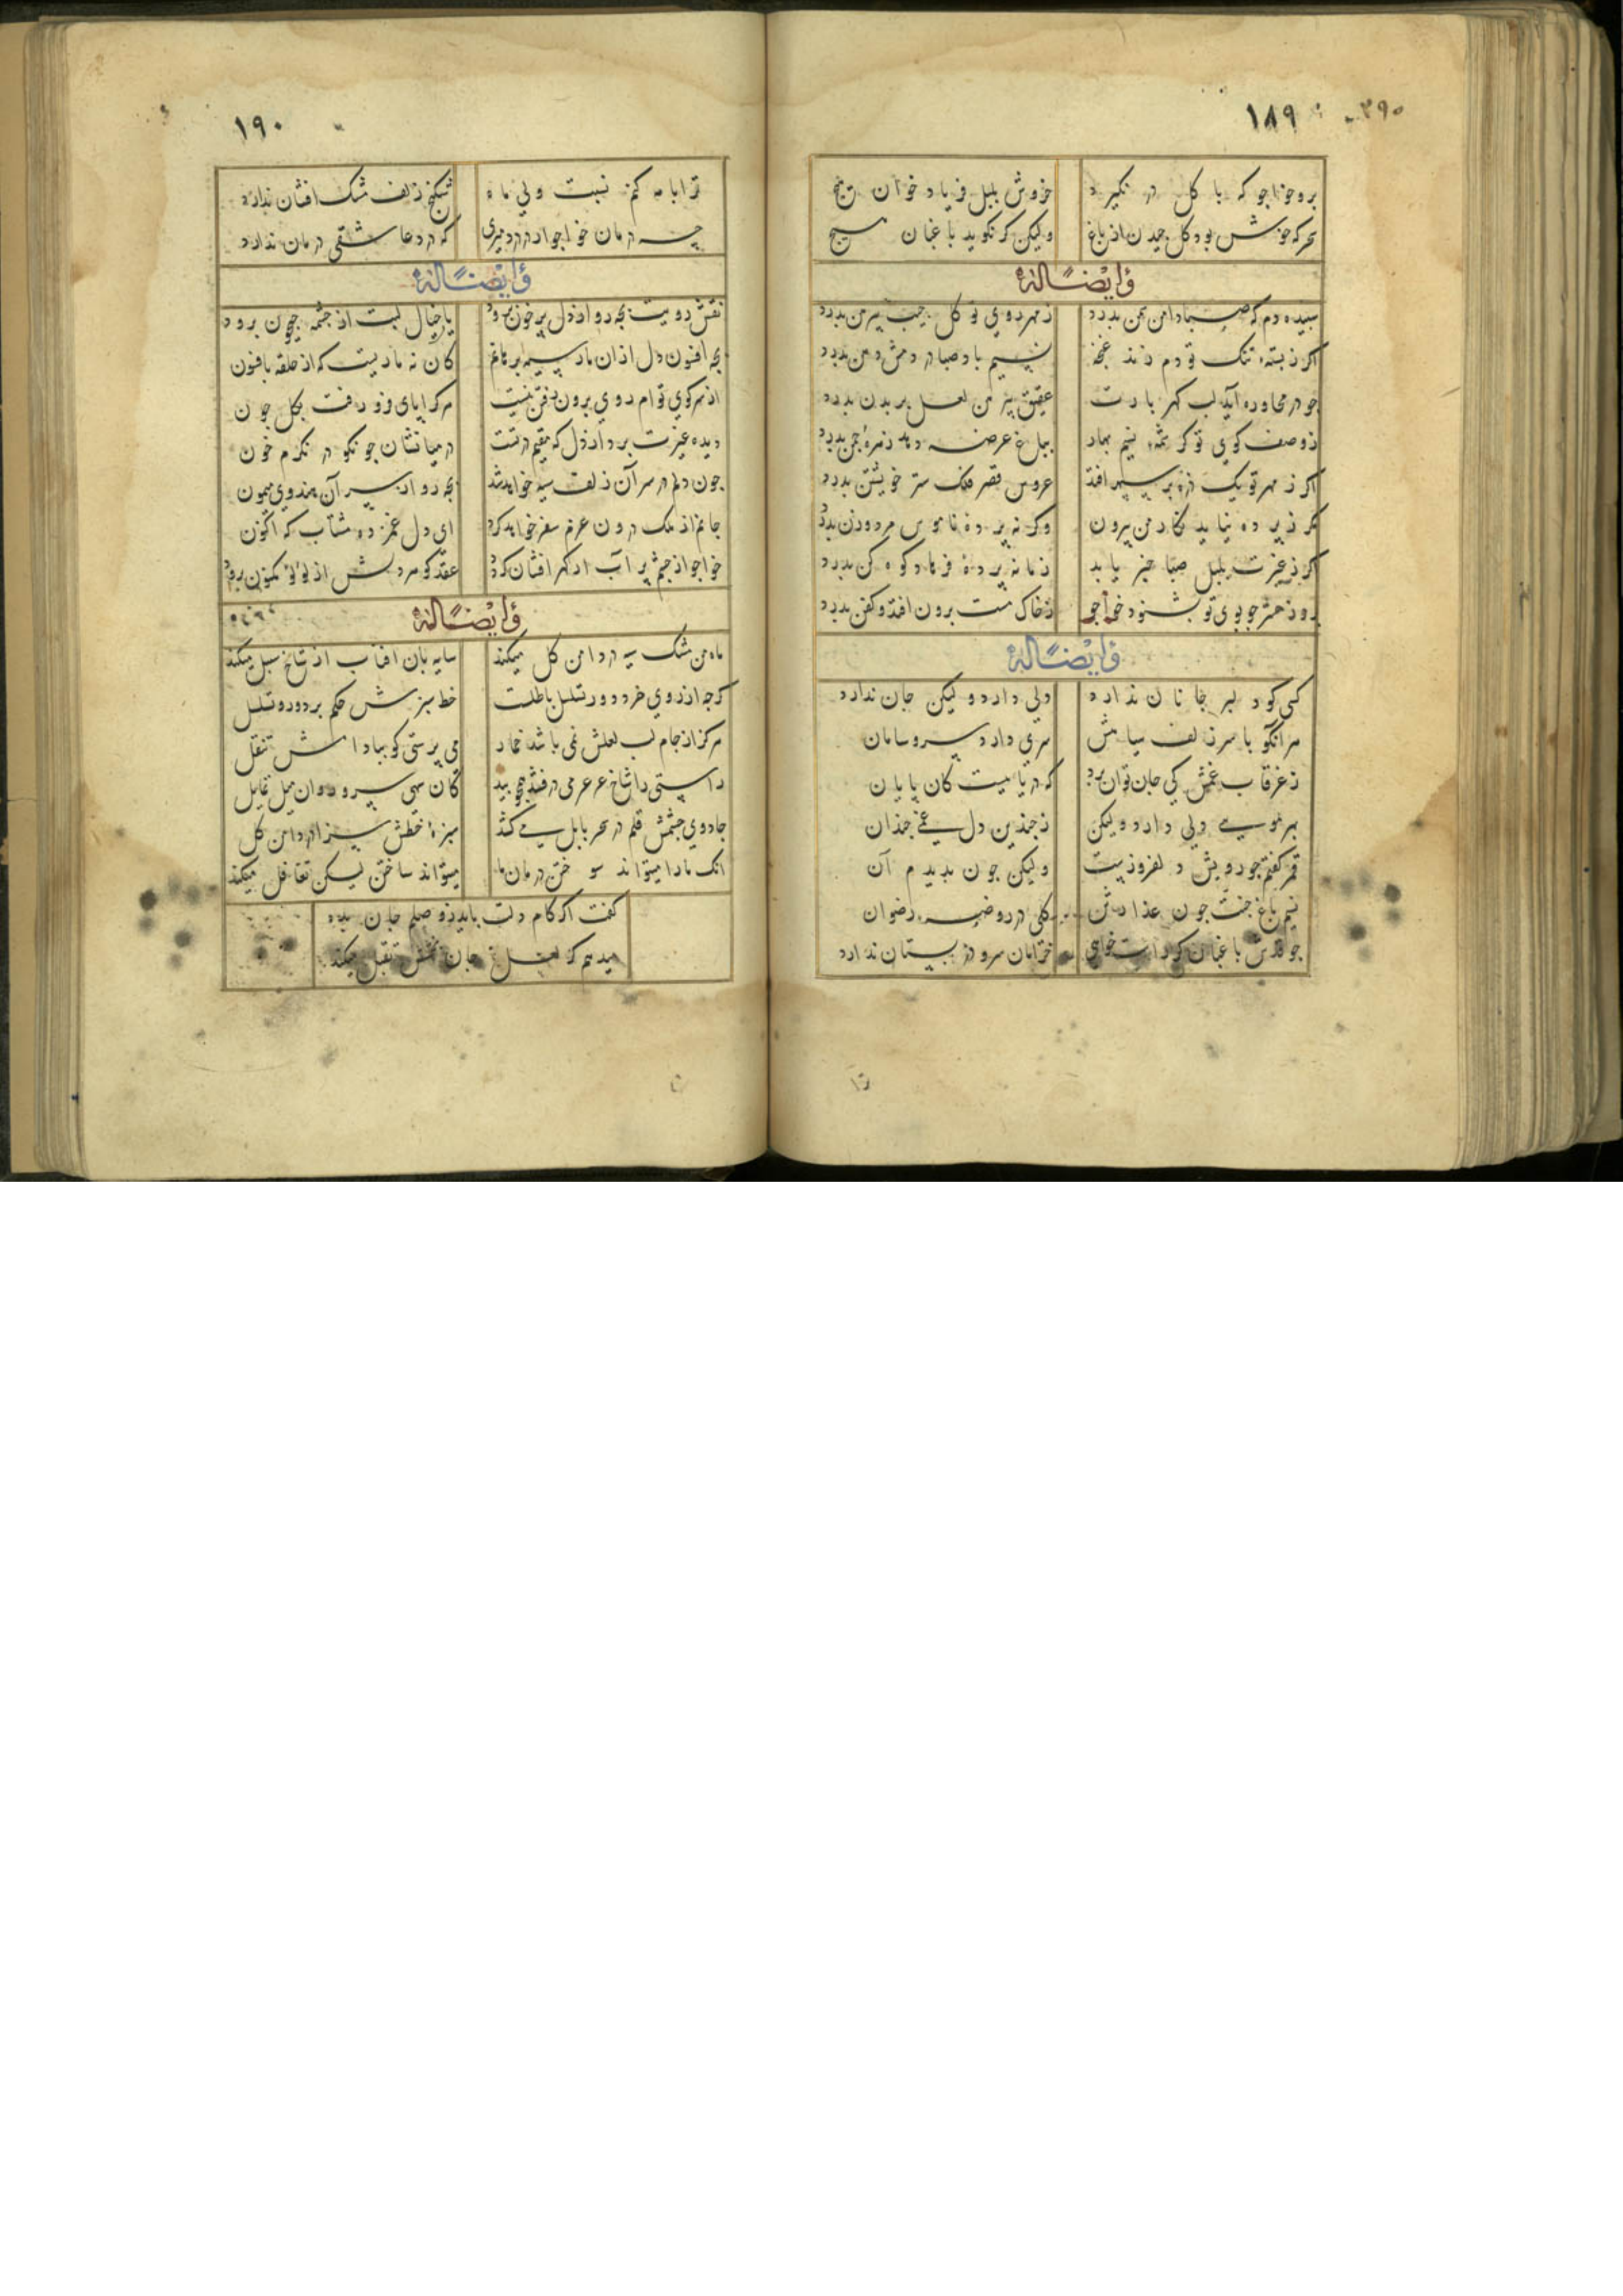 ۱۸۹
۲۹۰
برو خواجو که با گل در نگیرد خروش بلبل فریاد خوان هیچ
سحر که خوش بود گل چیدن از باغ ولیکن گر نگوید باغبان هیچ
وایضاً له
سپیده دم که صبا دامن سمن بدرد ز مهر روی تو گل جیب پیرهن بدرد
اگر ز پسته تنگ تو دم زند غنچه نسیم باد صبا در دمش دهن بدرد
چو در محاوره آید لب گهر بارت عقیق پیرهن لعل بر بدن بدرد
ز وصف کوی تو گر شمه نسیم بهار بباغ عرضه دهد زهره چمن بدرد
اگر ز مهر تو یک ذره بر سپهر افتد عروس قصر فلک ستر خویشتن بدرد
مگر ز پرده نیاید نگار من بیرون وگرنه پرده ناموس مرد و زن بدرد
اگر ز غیرت بلبل صبا خبر یابد زمانه پرده فرهاد کوه کن بدرد
روز حشر چو بوی تو بشنود خواجو ز خاک مست برون افتد و کفن بدرد
وایضاً له
کسی کو دلبر جانان ندارد دلی دارد ولیکن جان ندارد
هر آنکو با سر زلف سیاهش سری دارد سر و سامان
ز غرقاب غمش کی جان توان برد که دریائیست کان پایان
بهر موئی دلی دارد ولیکن ز چندین دل غمی چندان
قمر گفتم چو رویش دلفروزست ولیکن چون بدیدم آن
نسیم باغ جنت چون عذارش گلی در روضه رضوان
چو قدش باغبان گر راست خواهی خرامان سرو در بستان ندارد
۱۹۰
ترا با مه کنم نسبت ولی ماه شکنج زلف مشک افشان ندارد
چه درمان خواجو ار در درد میری که درد عاشقی درمان ندارد
وایضاً له
نقش رویت بچه رو از دل پر خون برود یا خیال لبت از چشمه جیحون برود
بچه افسون دل از ان مار سیه برهانم کان نه ماریست که از حلقه بافسون
از سر کوی توام روی برون رفتن نیست هر کرا پای فرو رفت بگل چون
دیده غیرت برد از دل که مقیم در تست در میانشان چو نکو در نگرم خون
چون دلم در سر آن زلف سیه خواهد شد بچه رو از سر آن هندوی میمون
جانم از ملک درون عزم سفر خواهد کرد ای دل غمزده مشتاب که اکنون
خواجو از چشم پر آب ار گهر افشان گردد عقد گوهر دلش از لؤلؤ مکنون برود
وایضاً له
ماه من مشک سیه در دامن گل میکند سایه بان افتاب از شاخ سنبل میکند
گرچه از روی خرد دور تسلسل باطلست خط سبزش حکم بر دور و تسلسل
هر کز از جام لب لعلش نمی باشد خمار می پرستی کو ببادامش تنقل
راستی را شاخ عرعر می در فتد همچو بید کان سهی سرو روان میل تمایل
جادوی چشمش قلم در سحر بابل می کشد سبزه خطش سزا در دامن گل
انک ما را میتواند سوختن درمان ما میتواند ساختن لیکن تغافل میکند
گفت اگر کام دلت باید ز وصلم جان بده
میدهم گر لعل جان بخشش تقبل میکند